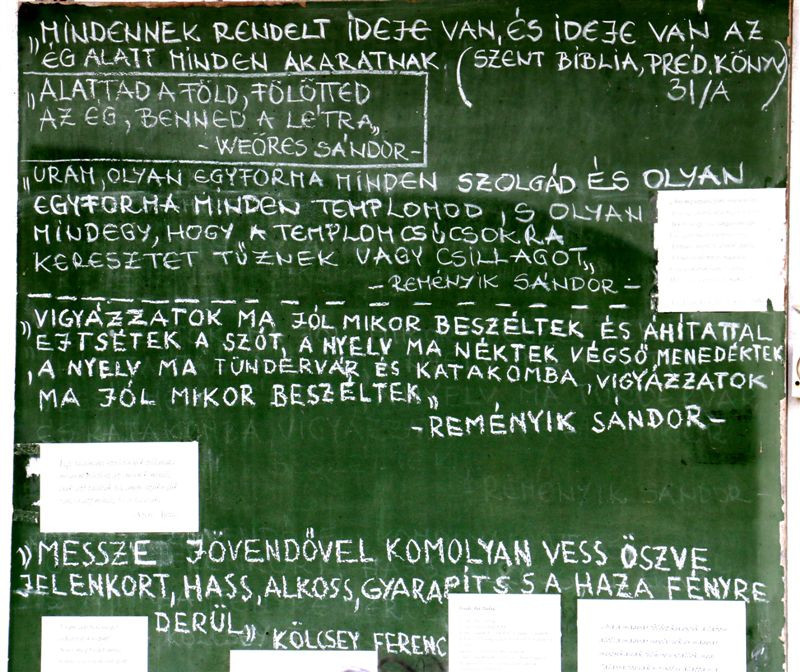 „MINDENNEK RENDELT IDEJE VAN, ÉS IDEJE VAN AZ
ÉG ALATT MINDEN AKARATNAK. (SZENT BIBLIA, PRÉD. KÖNYV
31/A)
„ALATTAD A FÖLD, FÖLÖTTED
AZ ÉG, BENNED A LÉTRA„
- WEÖRES SÁNDOR -
„URAM, OLYAN EGYFORMA MINDEN SZOLGÁD ÉS OLYAN
EGYFORMA MINDEN TEMPLOMOD, S OLYAN
MINDEGY, HOGY A TEMPLOMCSÚCSOKRA
KERESZTET TŰZNEK VAGY CSILLAGOT„
- REMÉNYIK SÁNDOR -
„VIGYÁZZATOK MA JÓL MIKOR BESZÉLTEK ÉS ÁHÍTATTAL
EJTSÉTEK A SZÓT, A NYELV MA NÉKTEK VÉGSŐ MENEDÉKTEK
, A NYELV MA TÜNDÉRVÁR ÉS KATAKOMBA, VIGYÁZZATOK
MA JÓL MIKOR BESZÉLTEK„
- REMÉNYIK SÁNDOR -
REMÉNYIK SÁNDOR -
„MESSZE JÖVENDŐVEL KOMOLYAN VESS ÖSZVE
JELENKORT, HASS, ALKOSS, GYARAPÍTS S A HAZA FÉNYRE
DERÜL„ KÖLCSEY FERENC